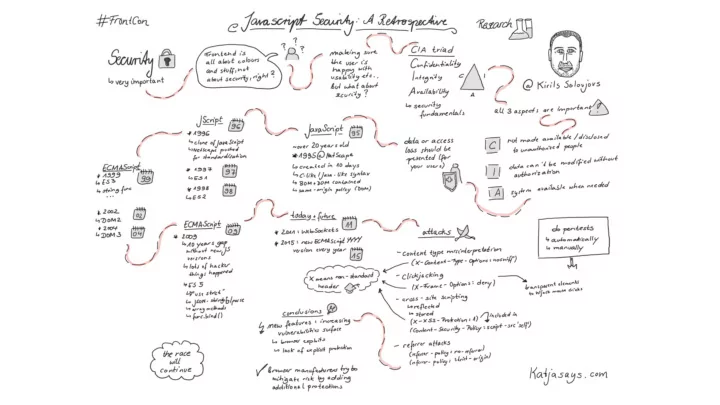 #FrontCon
@ Javascript Security: A Retrospective
Research
Security
↳ very important
Frontend is
all about colours
and stuff, not
about security, right?
? ? ?
making sure
the user is
happy with
usability etc..
But what about
security?
CIA triad
Confidentiality
Integrity
Availability
↳ security
fundamentals
C I A
@ Kirils Solovjovs
all 3 aspects are important
C not made available / disclosed
to unauthorized people
I data can't be modified without
authorization
A system available when needed
data or access
loss should be
prevented (for
your users)
JavaScript 95
- over 20 years old
* 1995 @ NetScape
↳ created in 10 days
↳ C-like / Java-like syntax
↳ BOM + DOM contained
↳ same-origin policy (DOM)
JScript 96
* 1996
↳ clone of JavaScript
↳ Netscape pushed
for standardization
* 1997 97
↳ ES1
* 1998 98
↳ ES2
ECMAScript 99
* 1999
↳ ES3
↳ string func
...
* 2002 02
↳ DOM2
* 2004 04
↳ DOM3
ECMAScript 09
* 2009
↳ 10 years gap
without new JS
versions
↳ lots of hacker
things happened
↳ ES5
↳ "use strict"
↳ JSON: stringify/parse
↳ array methods
↳ func.bind()
today + future
* 2011: WebSockets 11
* 2015: new ECMAScript YYYY 15
version every year
attacks
- content type misinterpretation
(X-Content-Type-Options: nosniff)
- clickjacking
(X-Frame-Options: deny)
transparent elements
to hijack mouse clicks
- cross-site scripting
↳ reflected
↳ stored
(X-XSS-Protection: 1) included in
(Content-Security-Policy: script-src 'self')
- referer attacks
(referrer-policy: no-referrer)
(referrer-policy: strict-origin)
X means non-standard
header
do pentests
↳ automatically
↳ manually
conclusions
↳ new features: increasing
vulnerabilities surface
↳ browser exploits
↳ lack of explicit protection
✓ Browser manufacturers try to
mitigate risk by adding
additional protections
the race
will
continue
Katjasays.com